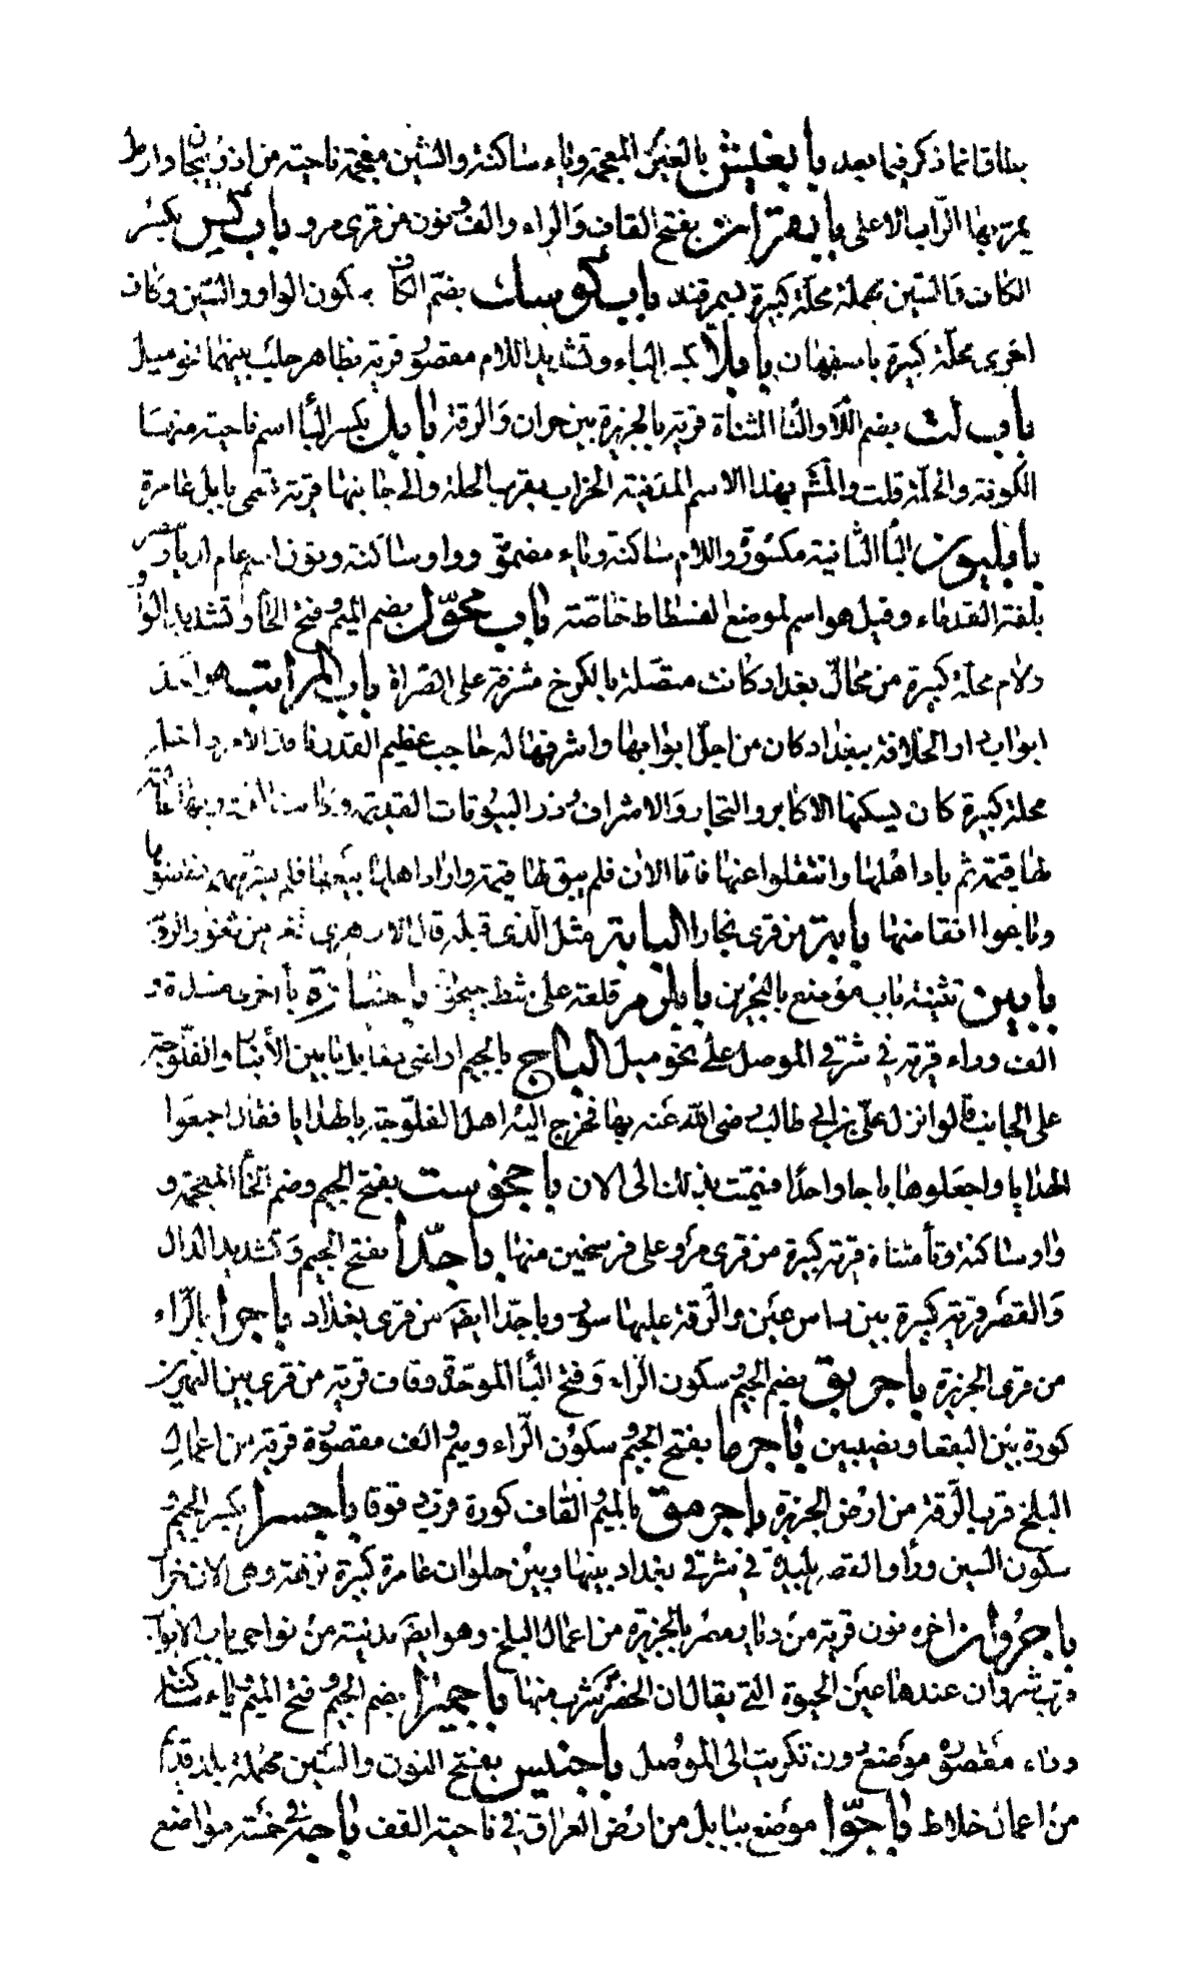 بطاقا نما ذكر فيما بعد بابغيش بالغين المعجمة وياء ساكنة والشين معجمة ناحية من اذربيجان واران
يمر بها الزاب الاعلى بابقران بفتح القاف والراء والف ونون من قرى مرو باب كس بكسر
الكاف والسين مهملة محلة كبيرة بسمرقند باب كوسك بضم الكاف وسكون الواو والسين وكاف
اخرى محلة كبيرة باصفهان بابلا بكسر الباء وتشديد اللام مقصور قرية بظاهر حلب بينهما نحو ميل
باب لت بضم اللام والتا المثناة قرية بالجزيرة بين حران والرقة بابل بكسر البا اسم ناحية منها
الكوفة والحلة قلت والمشهر بهذا الاسم المدينة الخراب بقرب الحلة والى جانبها قرية تسمى بابل عامرة
بابليون البا الثانية مكسورة واللام ساكنة وياء مضمومة وواو ساكنة ونون اسم عام لديار مصر
بلغة القدماء وقيل هو اسم لموضع الفسطاط خاصة باب محول بضم الميم وفتح الحاء وتشديد الواو
ولام محلة كبيرة من محال بغداد كانت متصلة بالكرخ مشرفة على الصراة باب المراتب هو احد
ابواب دار الخلافة ببغداد كان من اجل ابوابها واشرفها له حاجب عظيم القدر
محلة كبيرة كان يسكنها الاكابر والتجار والاشراف وذو البيوتات القديمة
لها قيمة ثم باد اهلها وانتقلوا عنها فاما الان فلم يبق لها قيمة واراد اهلها بيعها فلم
وباعوا انقاضها بابة من قرى بخارا البابة مثل الذي قبله قال الازهري ثغر من ثغور الروم
بابين تثنية باب موضع بالبحرين بابلزم قلعة على شط جيحون باحسارة بأ اخرى مشددة و
الف وراء قرية في شرقي الموصل على نحو ميل الباج بالجيم اراضي مقابل ما بين الأنبار والفلوجة
على الجانب قالوا نزل علي بن ابي طالب رضى الله عنه بها فخرج اليه اهل الفلوجة بالهدايا فقال اجمعوا
الهدايا واجعلوها باجا واحدا فسميت بذلك الى الان باجخوست بفتح الجيم وضم الخا المعجمة و
واو ساكنة وتا مثناة قرية كبيرة من قرى مرو على فرسخين منها باجدا بفتح الجيم وتشديد الدال
والقصر قرية كبيرة بين راس عين والرقة عليها سور وباجدا ايضا من قرى بغداد باجرا بالراء
من قرى الجزيرة باجربق بضم الجيم وسكون الراء وفتح البا الموحدة وقاف قرية من قرى بين النهرين
كورة بين البقعا ونصيبين باجرما بفتح الجيم وسكون الراء وميم والف مقصورة قرية من اعمال
البليخ قرب الرقة من ارض الجزيرة باجرمق بالميم والقاف كورة قرب دقوقا باجسرا بكسر الجيم و
سكون السين وراء والقصر بليدة في شرقي بغداد بينها وبين حلوان عامرة كثيرة نزهة وهي الان خراب
باجروان اخره نون قرية من ديار مضر بالجزيرة من اعمال البليخ وهو ايضا مدينة من نواحي باب الابواب
قرب شروان عندها عين الحيوة التي يقال ان الخضر شرب منها باجميرا بضم الجيم وفتح الميم وياء ساكنة
وراء مقصور موضع دون تكريت الى الموصل باجنيس بفتح النون والسين مهملة بلد قديم
من اعمال خلاط باجوا موضع ببابل من ارض العراق في ناحية القف باجة في خمسة مواضع